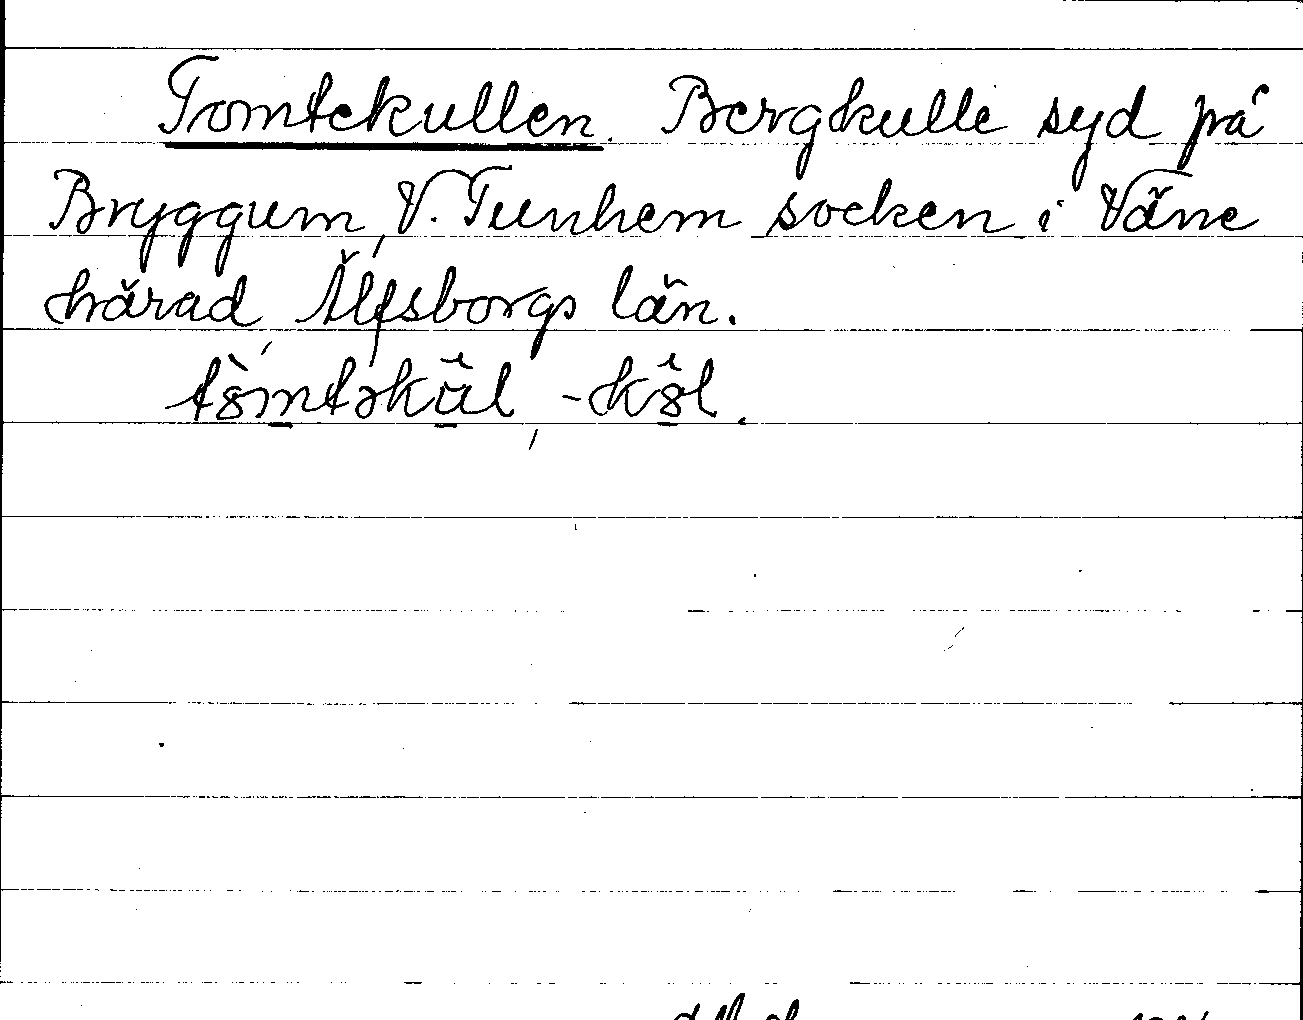 Tomtekullen. Bergkulle syd på
Bryggum, V. Tunhem socken i Väne
härad, Älfsborgs län.